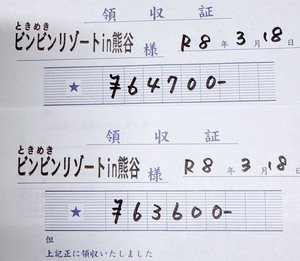 領収証
ときめき
ピンピンリゾートin熊谷 様 R8年3月18日
★ ¥64700-
領収証
ときめき
ピンピンリゾートin熊谷 様 R8年3月18日
★ ¥63600-
但
上記正に領収いたしました